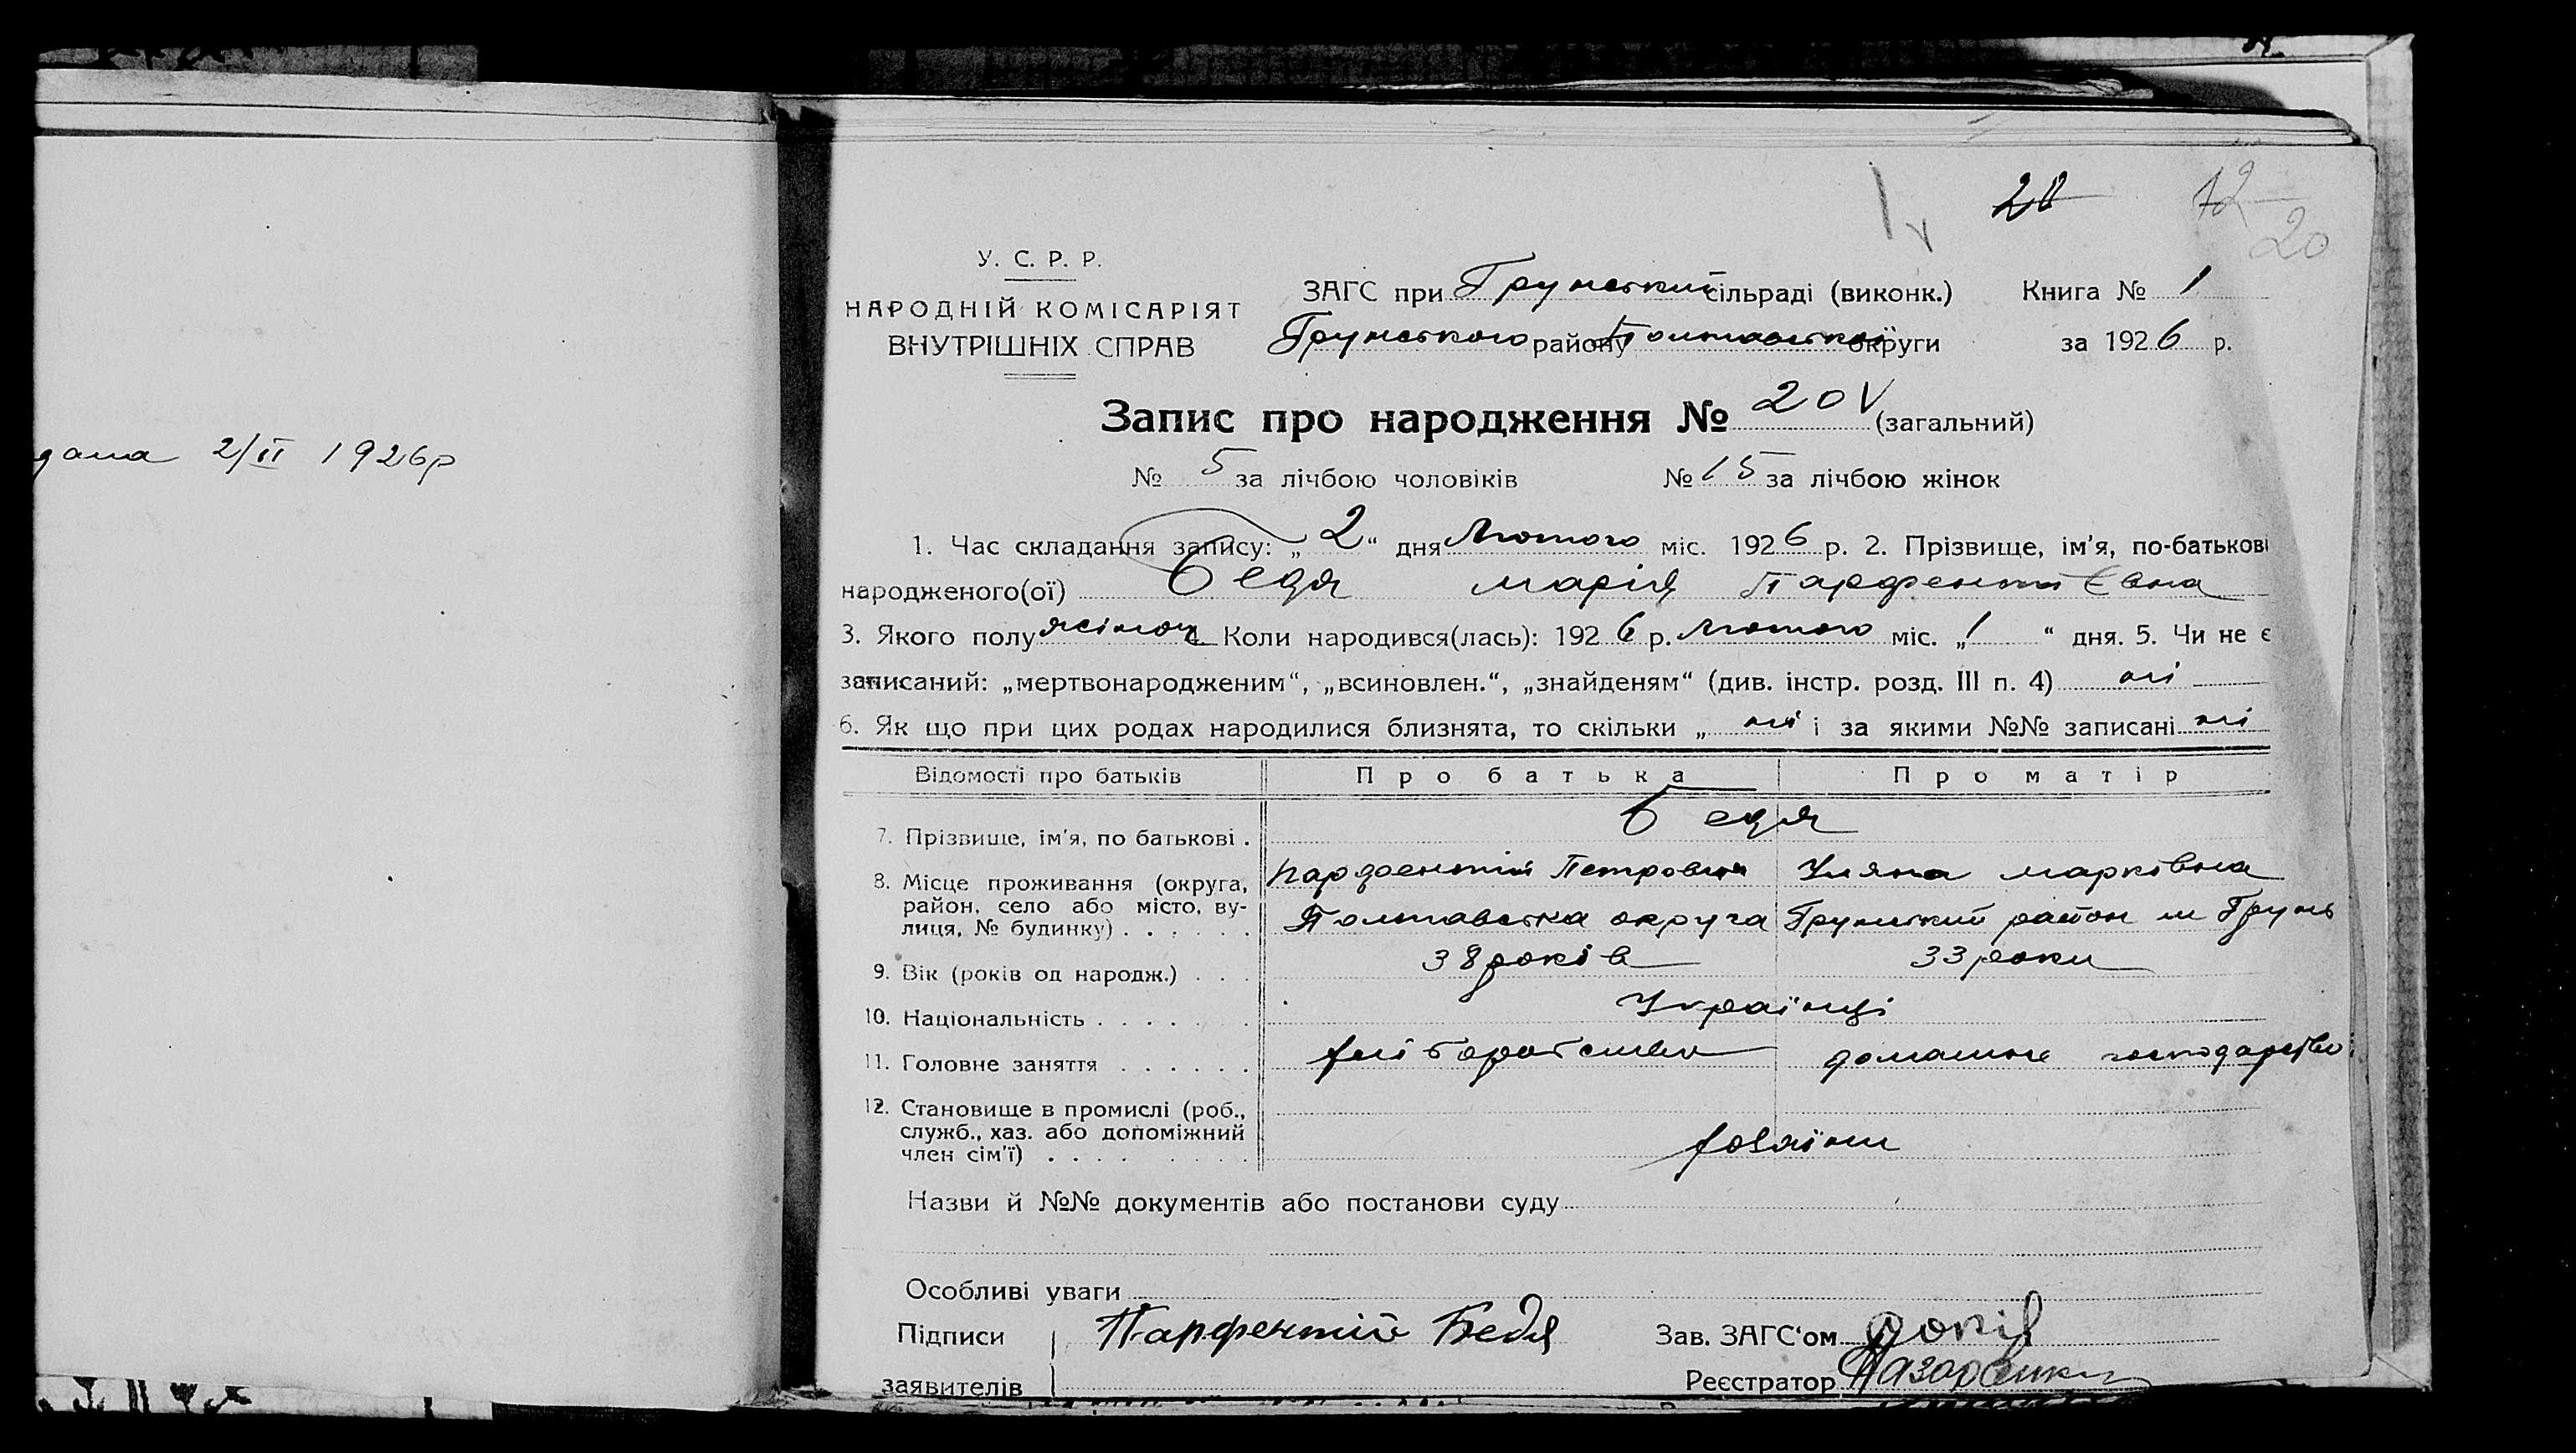 дана 2/II 1926р
20
12
20
У. С. Р. Р.
НАРОДНІЙ КОМІСАРІЯТ
ВНУТРІШНІХ СПРАВ
ЗАГС при Грунський сільраді (виконк.)
Грунського району Полтавської округи
Книга № 1
за 1926 р.
Запис про народження № 20 V (загальний)
№ 5 за лічбою чоловіків № 15 за лічбою жінок
1. Час складання запису: „2“ дня Лютого міс. 1926 р. 2. Прізвище, ім'я, по-батькові
народженого(ої) Бедя Марія Парфентієвна
3. Якого полу жіноч 4. Коли народився(лась): 1926 р. Лютого міс. „1“ дня. 5. Чи не є
записаний: „мертвонародженим“, „всиновлен.“, „знайденям“ (див. інстр. розд. III п. 4) ні
6. Як що при цих родах народилися близнята, то скільки „ ні і за якими №№ записані ні
Відомості про батьків Про батька Про матір
Бедя
7. Прізвище, ім'я, по батькові .
Парфентій Петрович Уляна Марківна
8. Місце проживання (округа,
район, село або місто, ву-
лиця, № будинку) . . . . . .
Полтавська округа Грунський район м Грунь
9. Вік (років од народж.) . . . 38 років 33 роки
10. Національність . . . . . . . Українці
11. Головне заняття . . . . . . хліборобство домашнє господарство
12. Становище в промислі (роб.,
служб., хаз. або допоміжний
член сім'ї) . . . .
хозяїни
Назви й №№ документів або постанови суду
Особливі уваги
Підписи Парфентій Бедя Зав. ЗАГС‘ом
заявителів Реєстратор